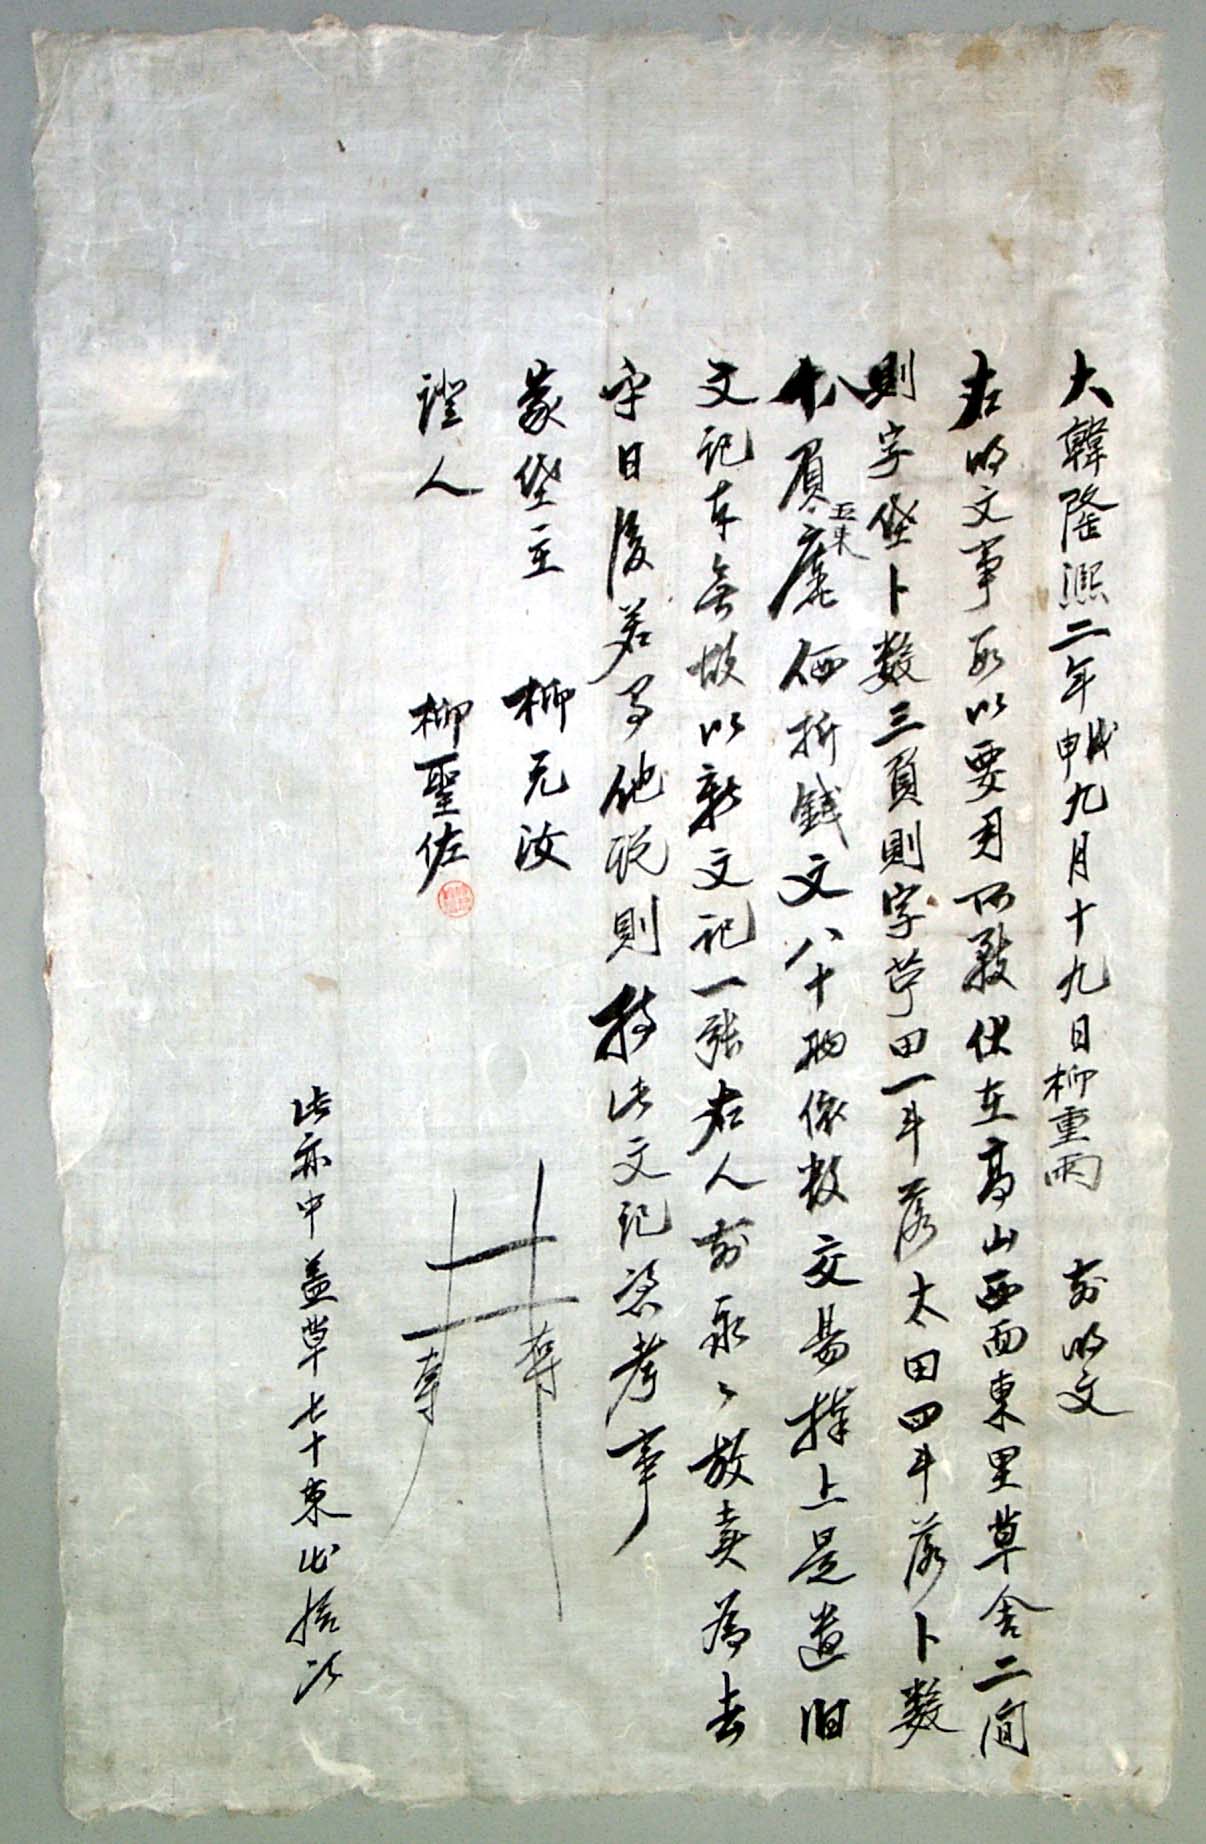 大韓隆熙二年戊申九月十九日柳重雨 前明文
右明文事段以要用所致伏在高山西面東里草舍二間
則字垈卜數三負則字苧田一斗落太田四斗落卜數
十八負五束廤価折錢文八十両依數交易捧上是遣旧
文記本無故以新文記一張右人前永々放賣為去
乎日後若有他說則持此文記憑考事
家垈主 柳元汝
證人 柳聖佐
此亦中盖草七十束